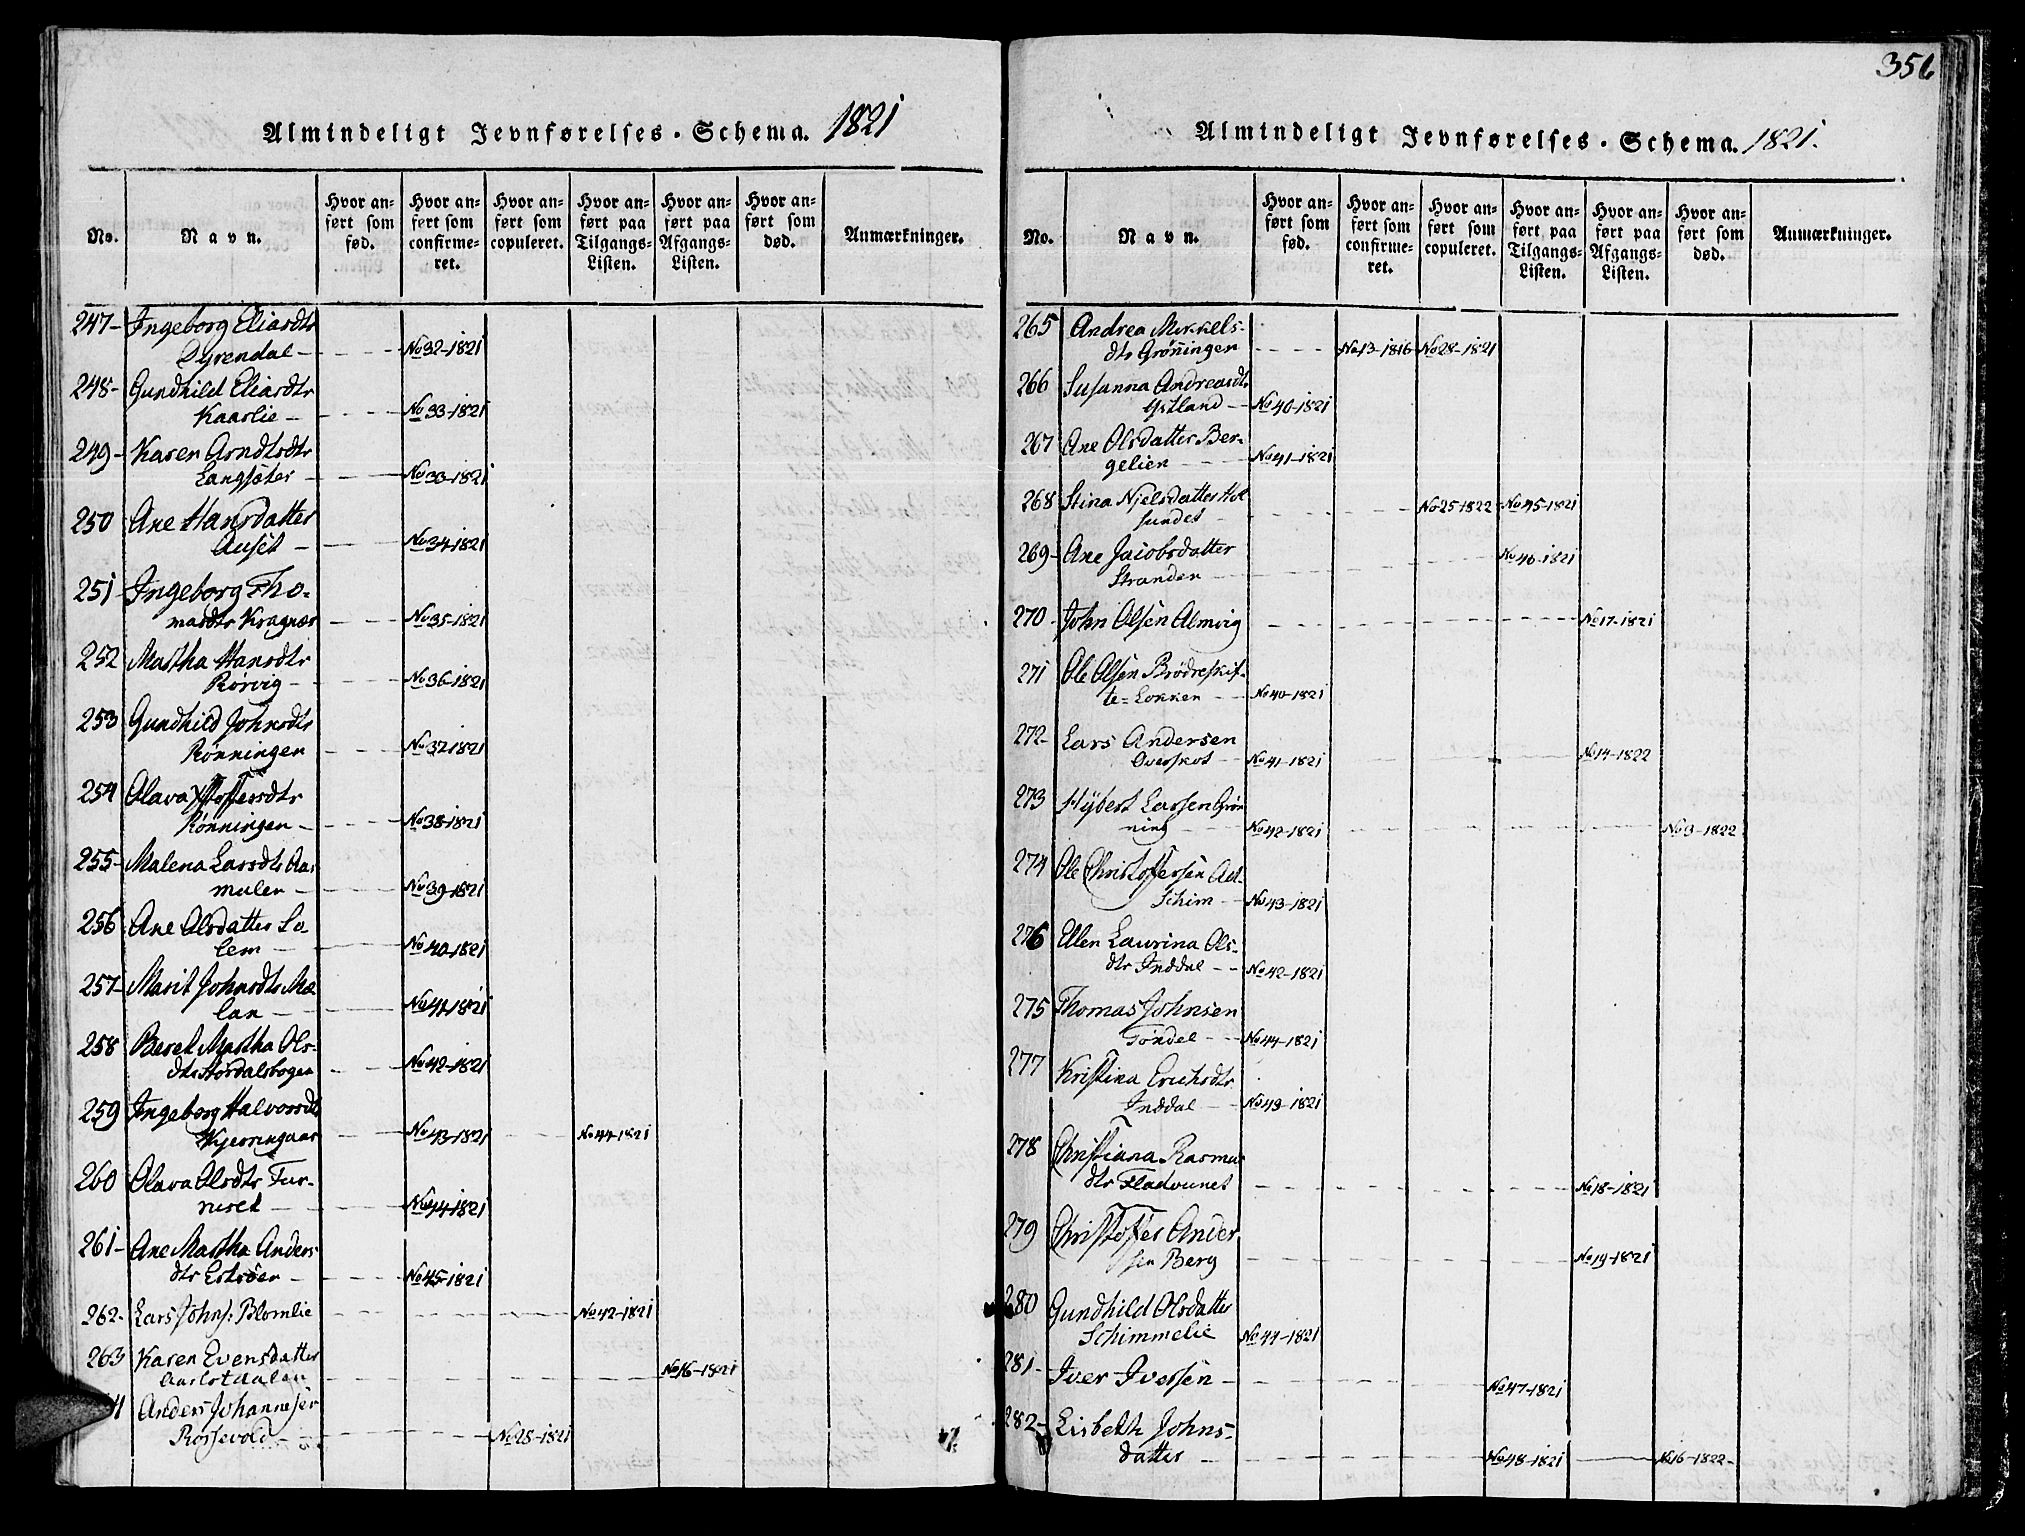 356
Almindeligt Jevnførelses-Schema. 1821
No.
Navn.
Hvor an-
ført som
fød.
Hvor an-
ført som
confirme-
ret.
Hvor an-
ført som
copuleret.
Hvor an-
ført paa
Tilgangs-
Listen.
Hvor an-
ført paa
Afgangs-
Listen.
Hvor an-
ført som
død.
Anmærkninger.
247- Ingeborg Eliasdtr
Dyrendal - No 32-1821
248- Gundhild Eliasdtr
Kaarlie - No 33-1821
249- Karen Arndtsdtr
Langsæter - No 33-1821
250 Ane Hansdatter
Auset - No 34-1821
251 Ingeborg Tho-
masdtr Kragnæs No 35-1821
252 Martha Hansdtr
Rørvig - No 36-1821
253 Gundhild Johnsdtr
Rønningen No 37-1821
254 Olava
Rønningen - No 38-1821
255- Malena Larsdtr Aas
mulen - No 39-1821
256 Ane Olsdatter So-
lem - No 40-1821
257- Marit Johnsdtr Mæ
lan - No 41-1821
258 Beret Martha Ols-
dtr Stordalsbogen No 42-1821
259 Ingeborg Halvorsdtr
No 43-1821 No 44-1821
260 Olava Olsdtr Fur-
No 44-1821
261- Ane Martha Anders
dtr No 45-1821
262- Lars Johns: Blomlie No 42-1821
263 Karen Evensdatter
No 16-1821
Anders Johannesen
Rossevold - No 28-1821
Almindeligt Jevnførelses-Schema. 1821.
No.
Navn.
Hvor an-
ført som
fød.
Hvor an-
ført som
confirme-
ret.
Hvor an-
ført som
copuleret.
Hvor an-
ført paa
Tilgangs-
Listen.
Hvor an-
ført paa
Afgangs-
Listen.
Hvor an-
ført som
død.
Anmærkninger.
265 Andrea Mikkels-
dtr Grønningen No 13-1816 No 28-1821
266 Susanna Andreasdtr
Ystland - No 40-1821
267 Ane Olsdatter Ber-
gelien No 41-1821
268 Stina Nielsdatter Hol
sundet No 25-1822 No 45-1821
269- Ane Jacobsdatter
Stranden No 46-1821
270 John Olsen Almvig No 17-1821
271 Ole Olsen Brødreskif-
te-Løkken No 40-1821
272- Lars Andersen
Overskot - No 41-1821 No 14-1822
273 Hybert Larsen Grøn
ning No 42-1821 No 3-1822
274 Ole Christoffersen AEl-
Schim - No 43-1821
276 Ellen Laurina Ols-
dtr Inddal - No 42-1821
275 Thomas Johnsen
Tøndel - No 44-1821
277 Kristina Erichsdtr
Inddal - No 43-1821
278 Christiana Rasmus
dtr Fladvunet No 18-1821
279 Christoffer Ander
sen Berg No 19-1821
280 Gundhild Olsdatter
Schimmelie No 44-1821
281- Iver Iversen - No 47-1821
282- Lisbeth Johns-
datter No 48-1821 No 16-1822